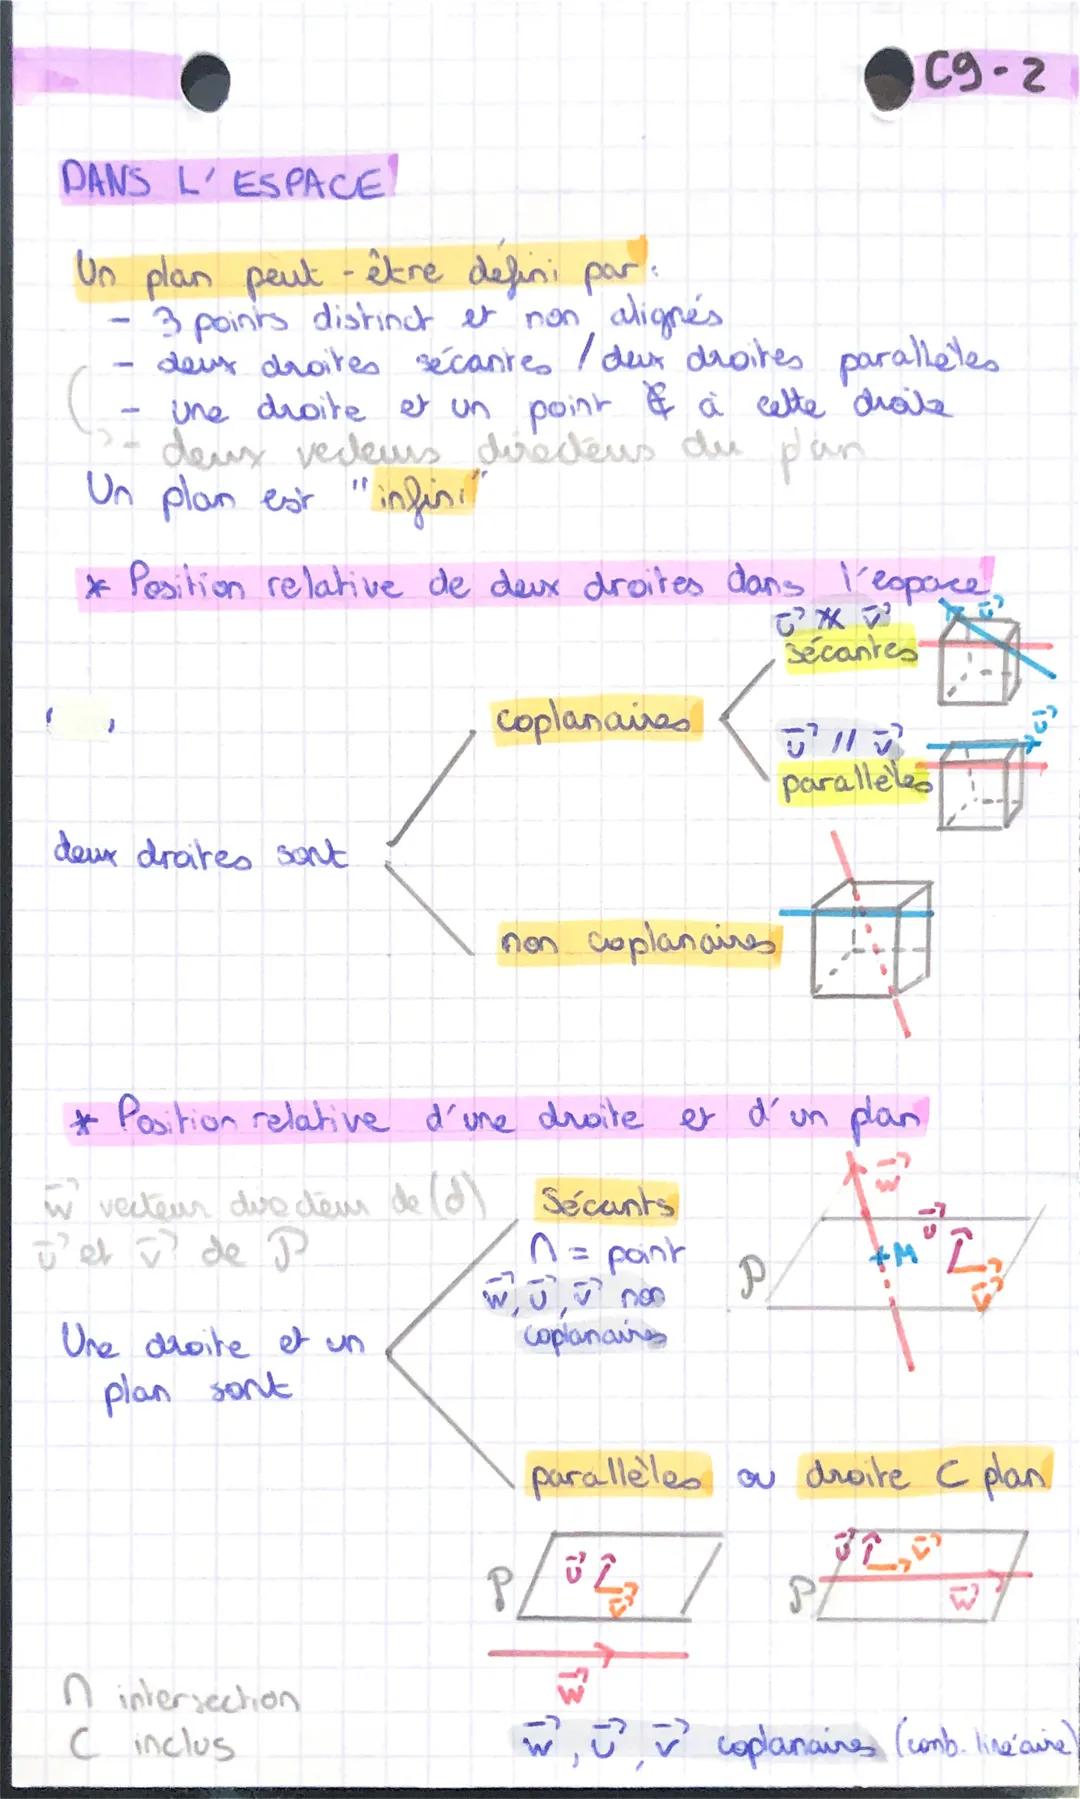 C9-2
DANS L'ESPACE
Un plan peut-être défini par:
- 3 points distinct et non alignés
- deux droites sécantes / deux droites parallèles
- une droite et un point ∉ à cette droite
- deux vecteurs directeurs du plan
Un plan est "infini"
* Position relative de deux droites dans l'espace
u⃗ ∦ v⃗
sécantes
u⃗
coplanaires
u⃗ // v⃗
parallèles
u⃗
deux droites sont
non coplanaires
* Position relative d'une droite et d'un plan
w⃗ vecteur directeur de (d)
u⃗ et v⃗ de P
Sécants
∩ = point
w⃗, u⃗, v⃗ non
coplanaires
w⃗
u⃗
+M
P
v⃗
Une droite et un
plan sont
parallèles ou droite ⊂ plan
P
u⃗
v⃗
w⃗
u⃗
v⃗
P
w⃗
∩ intersection
⊂ inclus
w⃗, u⃗, v⃗ coplanaires (comb. linéaire)